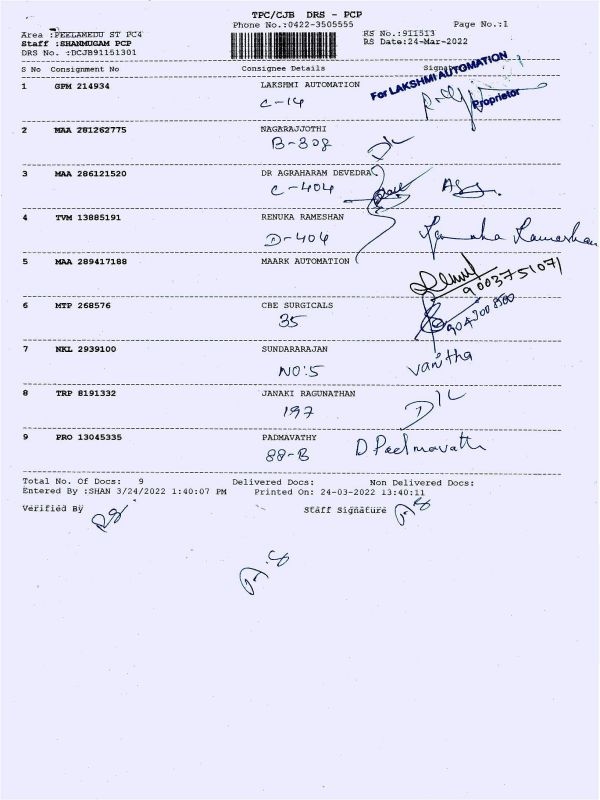 TPC/CJB DRS - PCP
Phone No.:0422-3505555 Page No.:1
Area :PEELAMEDU ST PC4 RS No.:911513
Staff :SHANMUGAM PCP RS Date:24-Mar-2022
DRS No. :DCJB91151301
S No Consignment No Consignee Details Signature
For LAKSHMI AUTOMATION
1 GPM 214934 LAKSHMI AUTOMATION
C-14 Proprietor
2 MAA 281262775 NAGARAJJOTHI
B-308 D/L
3 MAA 286121520 DR AGRAHARAM DEVEDRA
C-404
4 TVM 13885191 RENUKA RAMESHAN
D-404 Renuka Rameshan
5 MAA 289417188 MAARK AUTOMATION
9003751071
6 MTP 268576 CBE SURGICALS
35
7 NKL 2939100 SUNDARARAJAN
NO:5 Vanitha
8 TRP 8191332 JANAKI RAGUNATHAN
197 D/L
9 PRO 13045335 PADMAVATHY
88-B D Padmavathi
Total No. Of Docs: 9 Delivered Docs: Non Delivered Docs:
Entered By :SHAN 3/24/2022 1:40:07 PM Printed On: 24-03-2022 13:40:11
Verified By Staff Signature